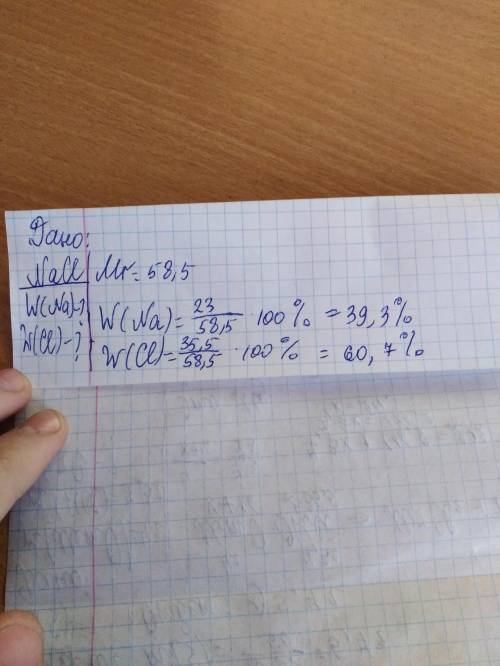 Дано:
NaCl Mr = 58,5
W(Na)-? W(Na) = 23/58,5 · 100% = 39,3%
W(Cl)-? W(Cl) = 35,5/58,5 · 100% = 60,7%